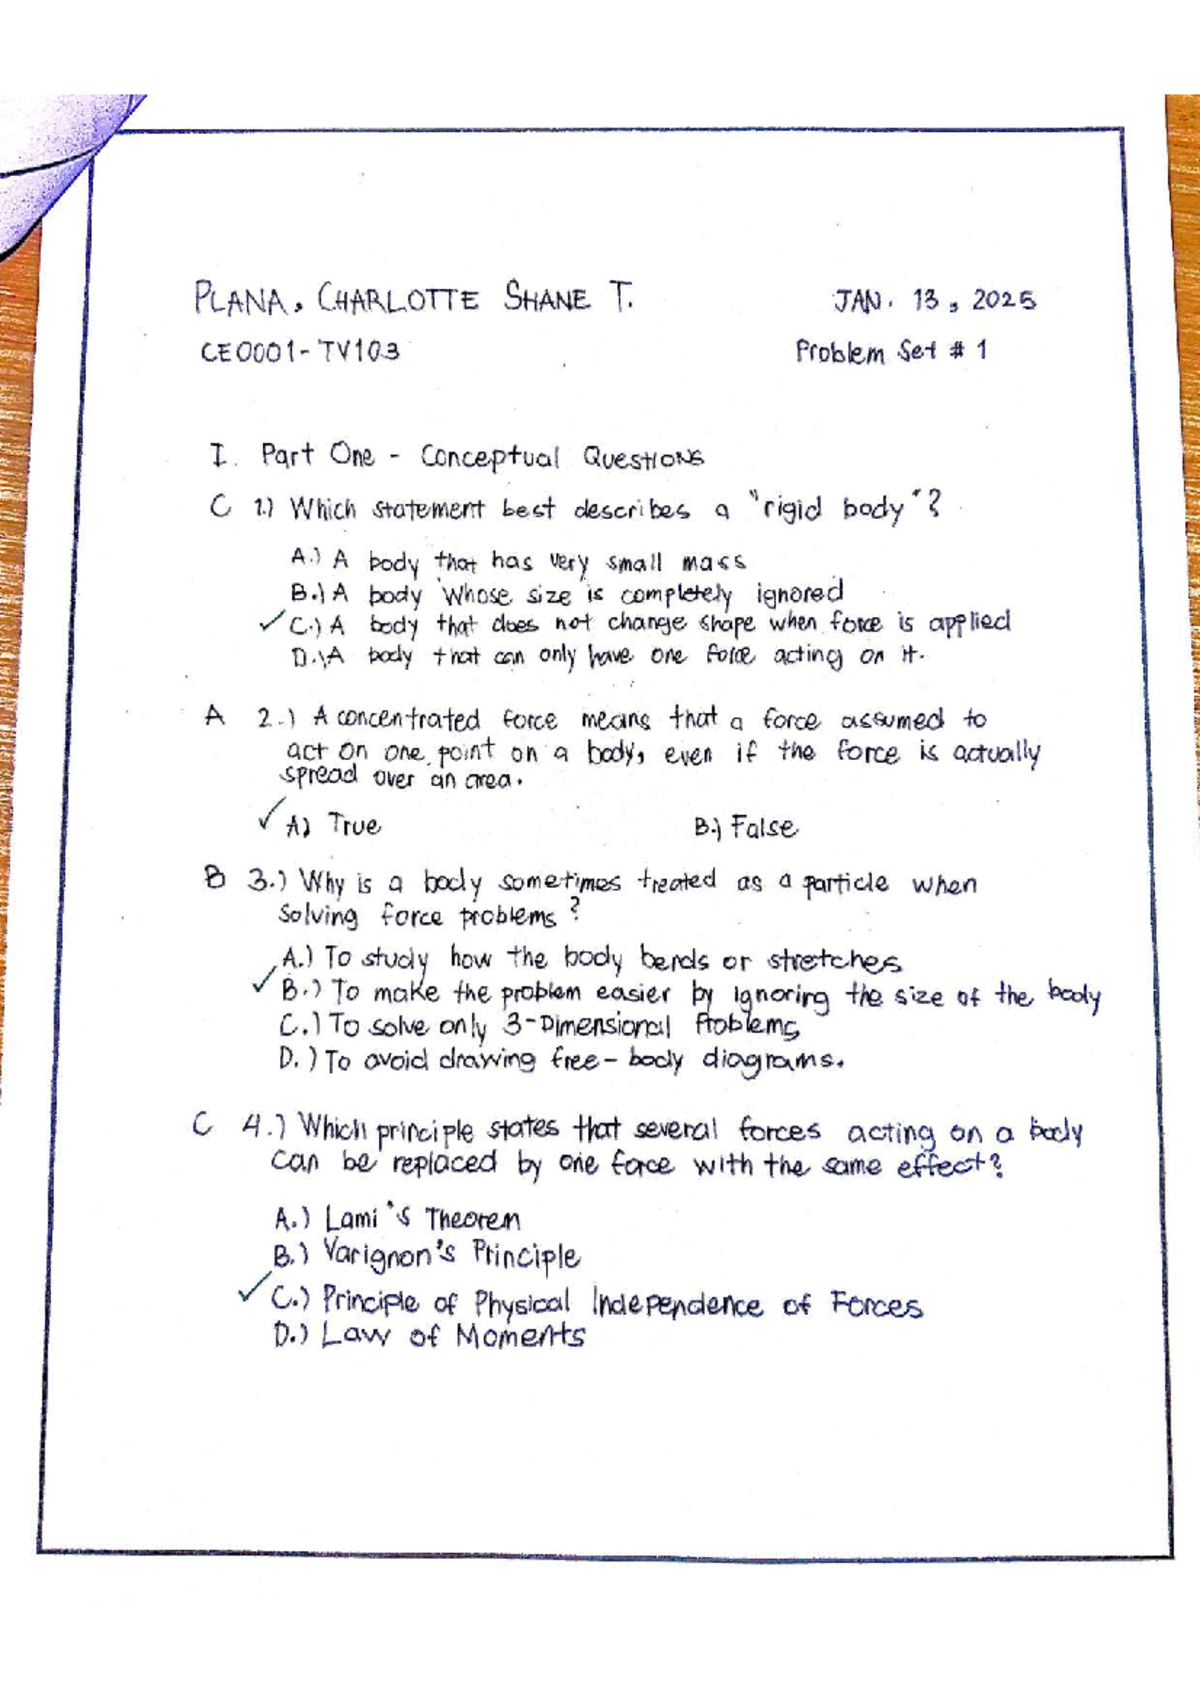 PLANA, CHARLOTTE SHANE T. JAN. 13, 2025
CE0001-TV103 Problem Set # 1
I. Part One - Conceptual Questions
C 1.) Which statement best describes a "rigid body"?
A.) A body that has very small mass
B.) A body whose size is completely ignored
✓ C.) A body that does not change shape when force is applied
D.) A body that can only have one force acting on it.
A 2.) A concentrated force means that a force assumed to
act on one point on a body, even if the force is actually
spread over an area.
✓ A) True B.) False
B 3.) Why is a body sometimes treated as a particle when
solving force problems?
A.) To study how the body bends or stretches
✓ B.) To make the problem easier by ignoring the size of the body
C.) To solve only 3-Dimensional Problems
D.) To avoid drawing free-body diagrams.
C 4.) Which principle states that several forces acting on a body
can be replaced by one force with the same effect?
A.) Lami's Theorem
B.) Varignon's Principle
✓ C.) Principle of Physical Independence of Forces
D.) Law of Moments